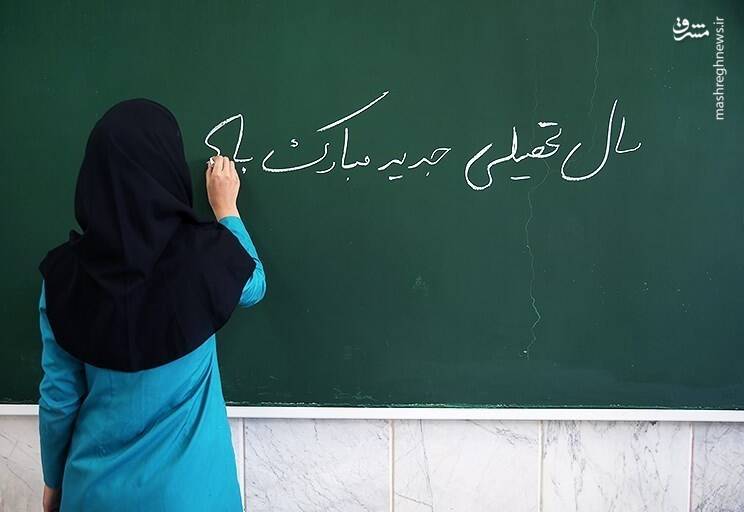 سال تحصیلی جدید مبارک با
مشرق
mashreghnews.ir